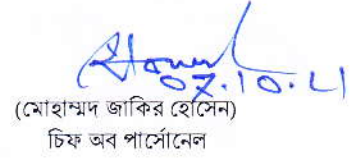 07.10.21
(মোহাম্মদ জাকির হোসেন)
চিফ অব পার্সোনেল